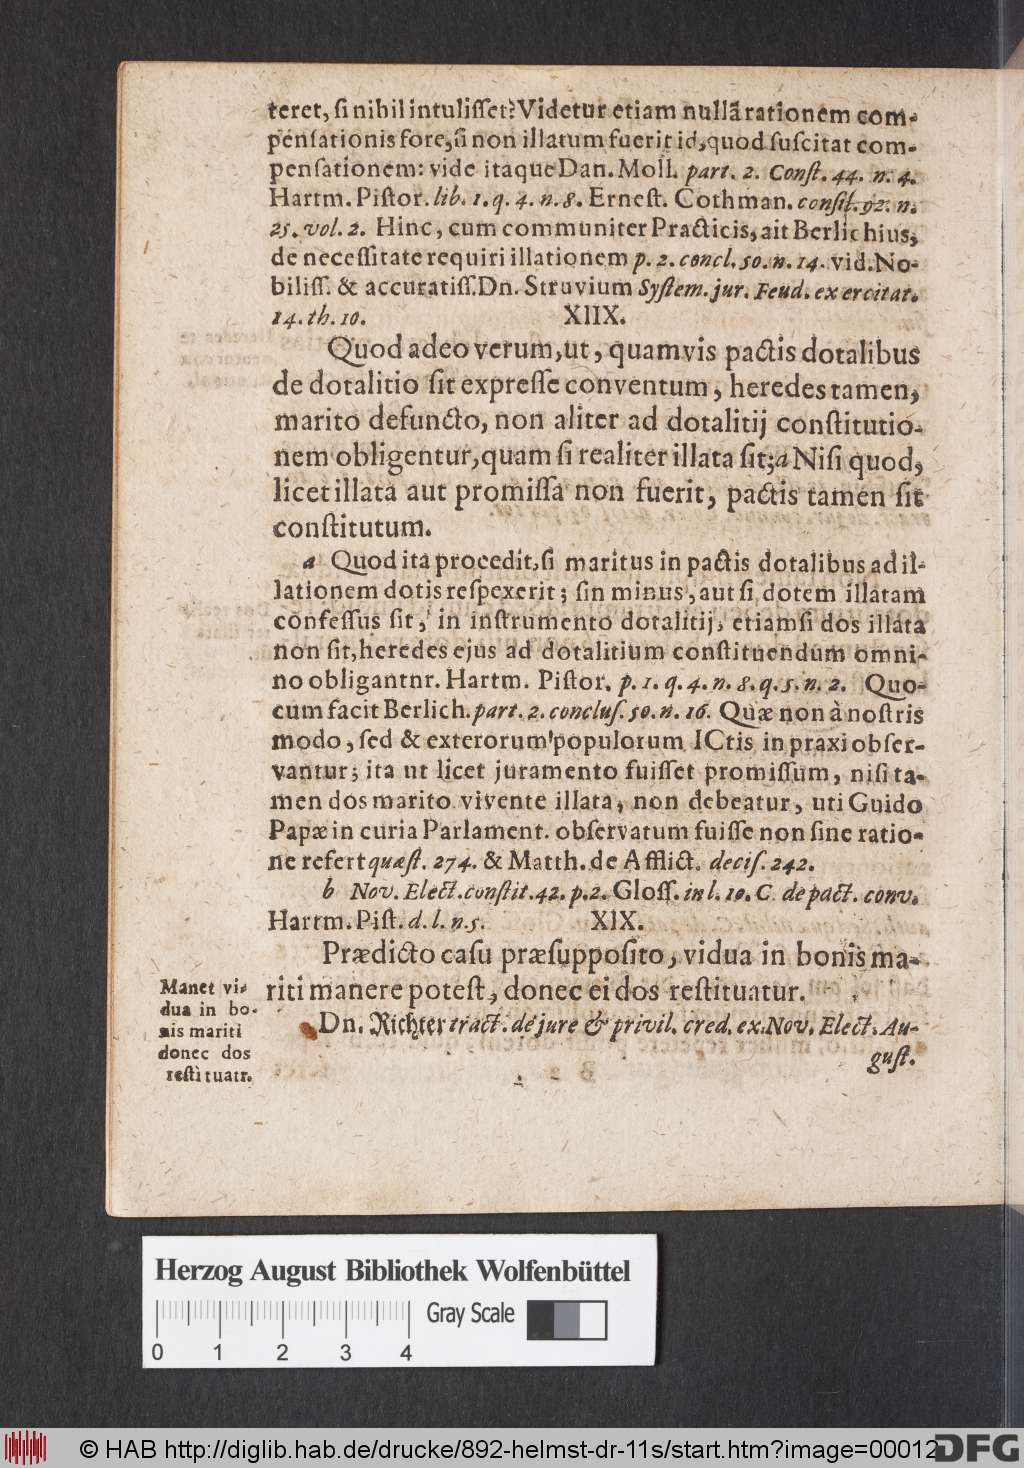 teret, ſi nihil intuliſſet? Videtur etiam nullã rationem com-
penſationis fore, ſi non illatum fuerit id, quod ſuſcitat com-
penſationem: vide itaque Dan. Moll. part. 2. Conſt. 44. n. 4.
Hartm. Piſtor. lib. 1. q. 4. n. 8. Erneſt. Cothman. conſil. 92. n.
25. vol. 2. Hinc, cum communiter Practicis, ait Berlichius,
de neceſſitate requiri illationem p. 2. concl. 50. n. 14. vid. No-
biliſſ. & accuratiſſ. Dn. Struvium Syſtem. jur. Feud. exercitat.
14. th. 10. XIIX.
Quod adeo verum, ut, quamvis pactis dotalibus
de dotalitio ſit expreſſe conventum, heredes tamen,
marito defuncto, non aliter ad dotalitij conſtitutio-
nem obligentur, quam ſi realiter illata ſit; a Niſi quod,
licet illata aut promiſſa non fuerit, pactis tamen ſit
conſtitutum.
a Quod ita procedit, ſi maritus in pactis dotalibus ad il-
lationem dotis reſpexerit; ſin minus, aut ſi dotem illatam
confeſſus ſit, in inſtrumento dotalitij, etiamſi dos illata
non ſit, heredes ejus ad dotalitium conſtituendum omni-
no obligantnr. Hartm. Piſtor. p. 1. q. 4. n. 8. q. 5. n. 2. Quo-
cum facit Berlich. part. 2. concluſ. 50. n. 16. Quæ non à noſtris
modo, ſed & exterorum populorum ICtis in praxi obſer-
vantur; ita ut licet juramento fuiſſet promiſſum, niſi ta-
men dos marito vivente illata, non debeatur, uti Guido
Papæ in curia Parlament. obſervatum fuiſſe non ſine ratio-
ne refert quæſt. 274. & Matth. de Afflict. deciſ. 242.
b Nov. Elect. conſtit. 42. p. 2. Gloſſ. in l. 10. C. de pact. conv.
Hartm. Piſt. d. l. n. 5. XIX.
Prædicto caſu præſuppoſito, vidua in bonis ma-
riti manere poteſt, donec ei dos reſtituatur.
Manet vi-
dua in bo-
nis mariti
donec dos
reſtituatr.
Dn. Richter tract. de jure & privil. cred. ex. Nov. Elect. Au-
guſt.
Herzog August Bibliothek Wolfenbüttel
Gray Scale
0 1 2 3 4
© HAB http://diglib.hab.de/drucke/892-helmst-dr-11s/start.htm?image=00012
DFG